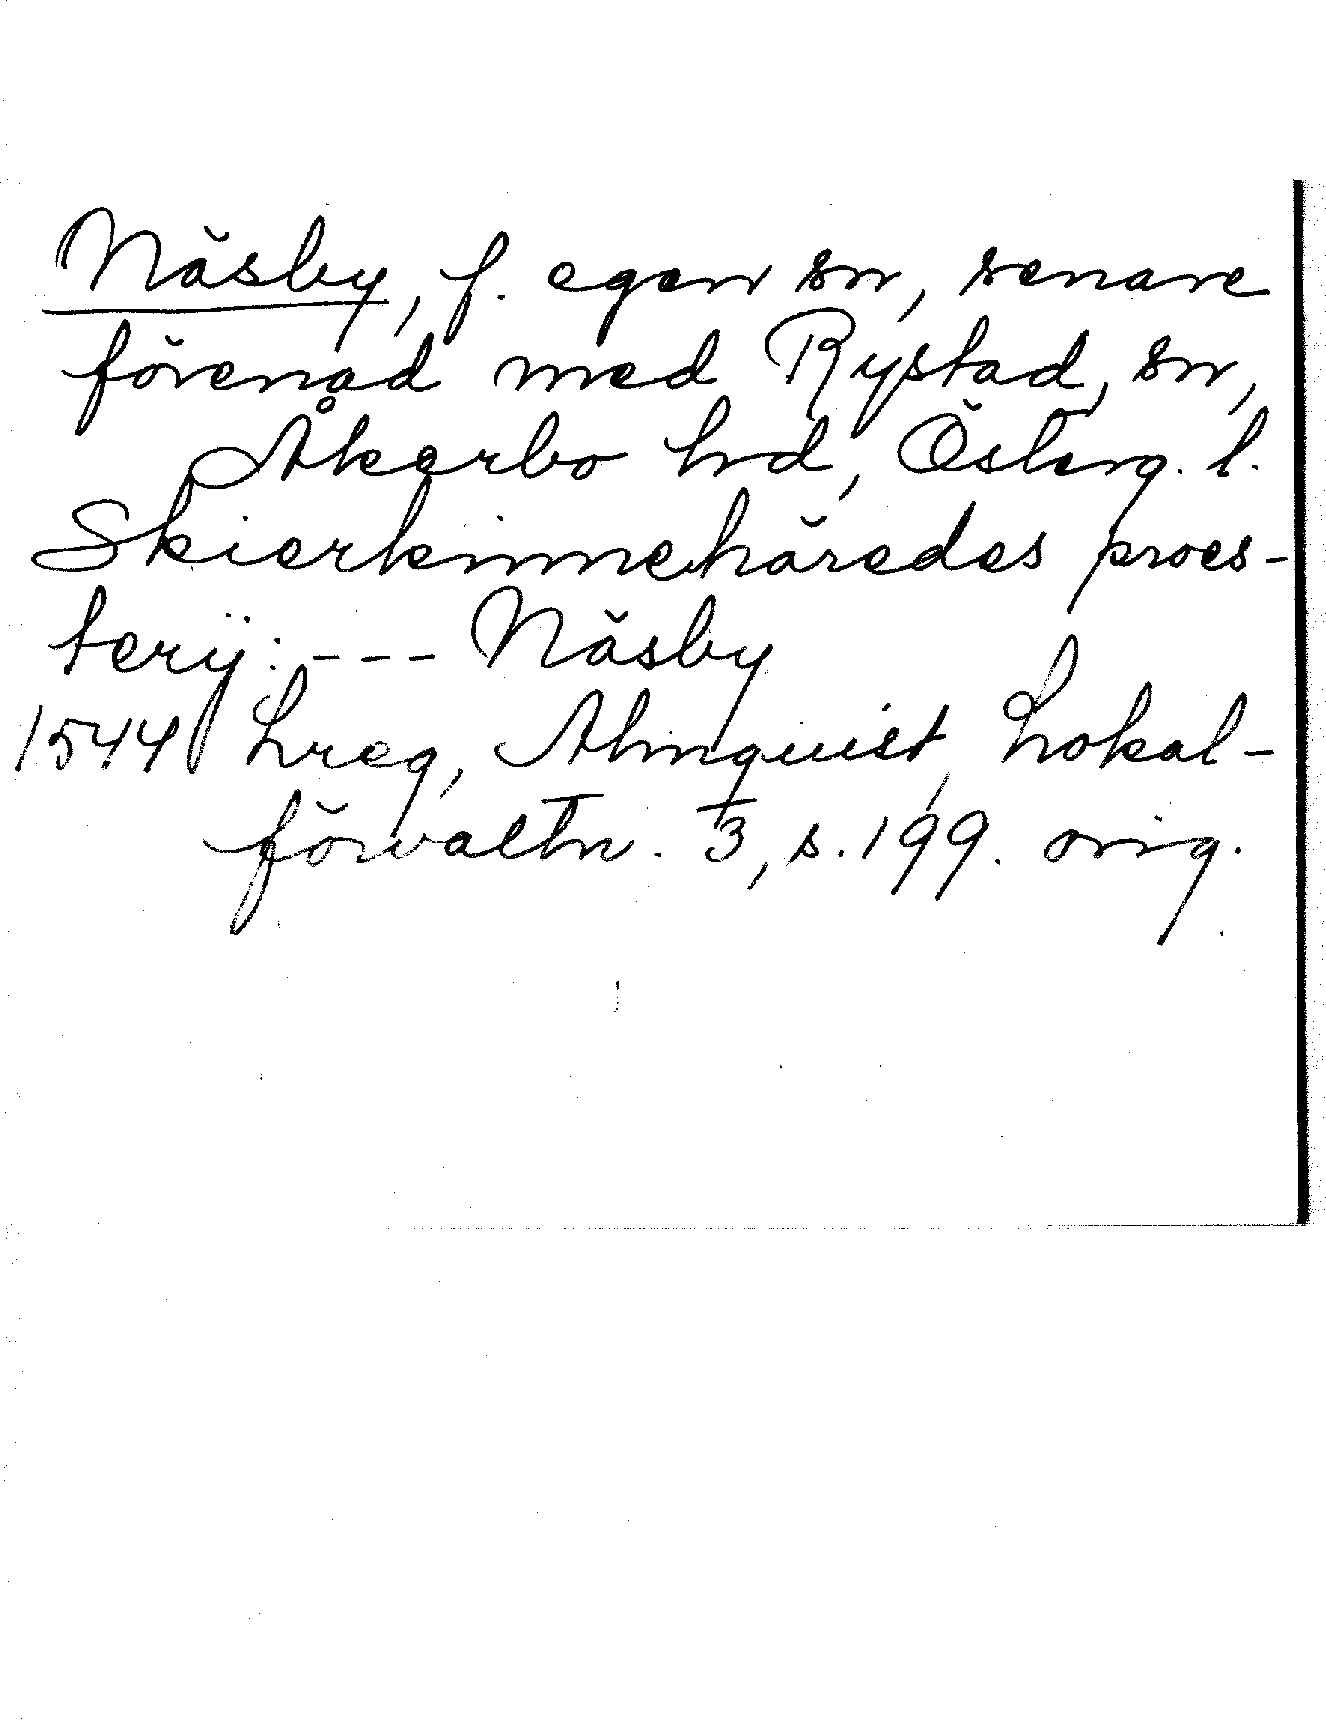 Näsby, f. egen sn, senare
förenad med Rystad, sn,
Åkerbo hrd, Österg. l.
Skierkinnehäredes proes-
terij: --- Näsby
1544 Lreg, Almquist, Lokal-
förvaltn. 3, s. 199. orig.